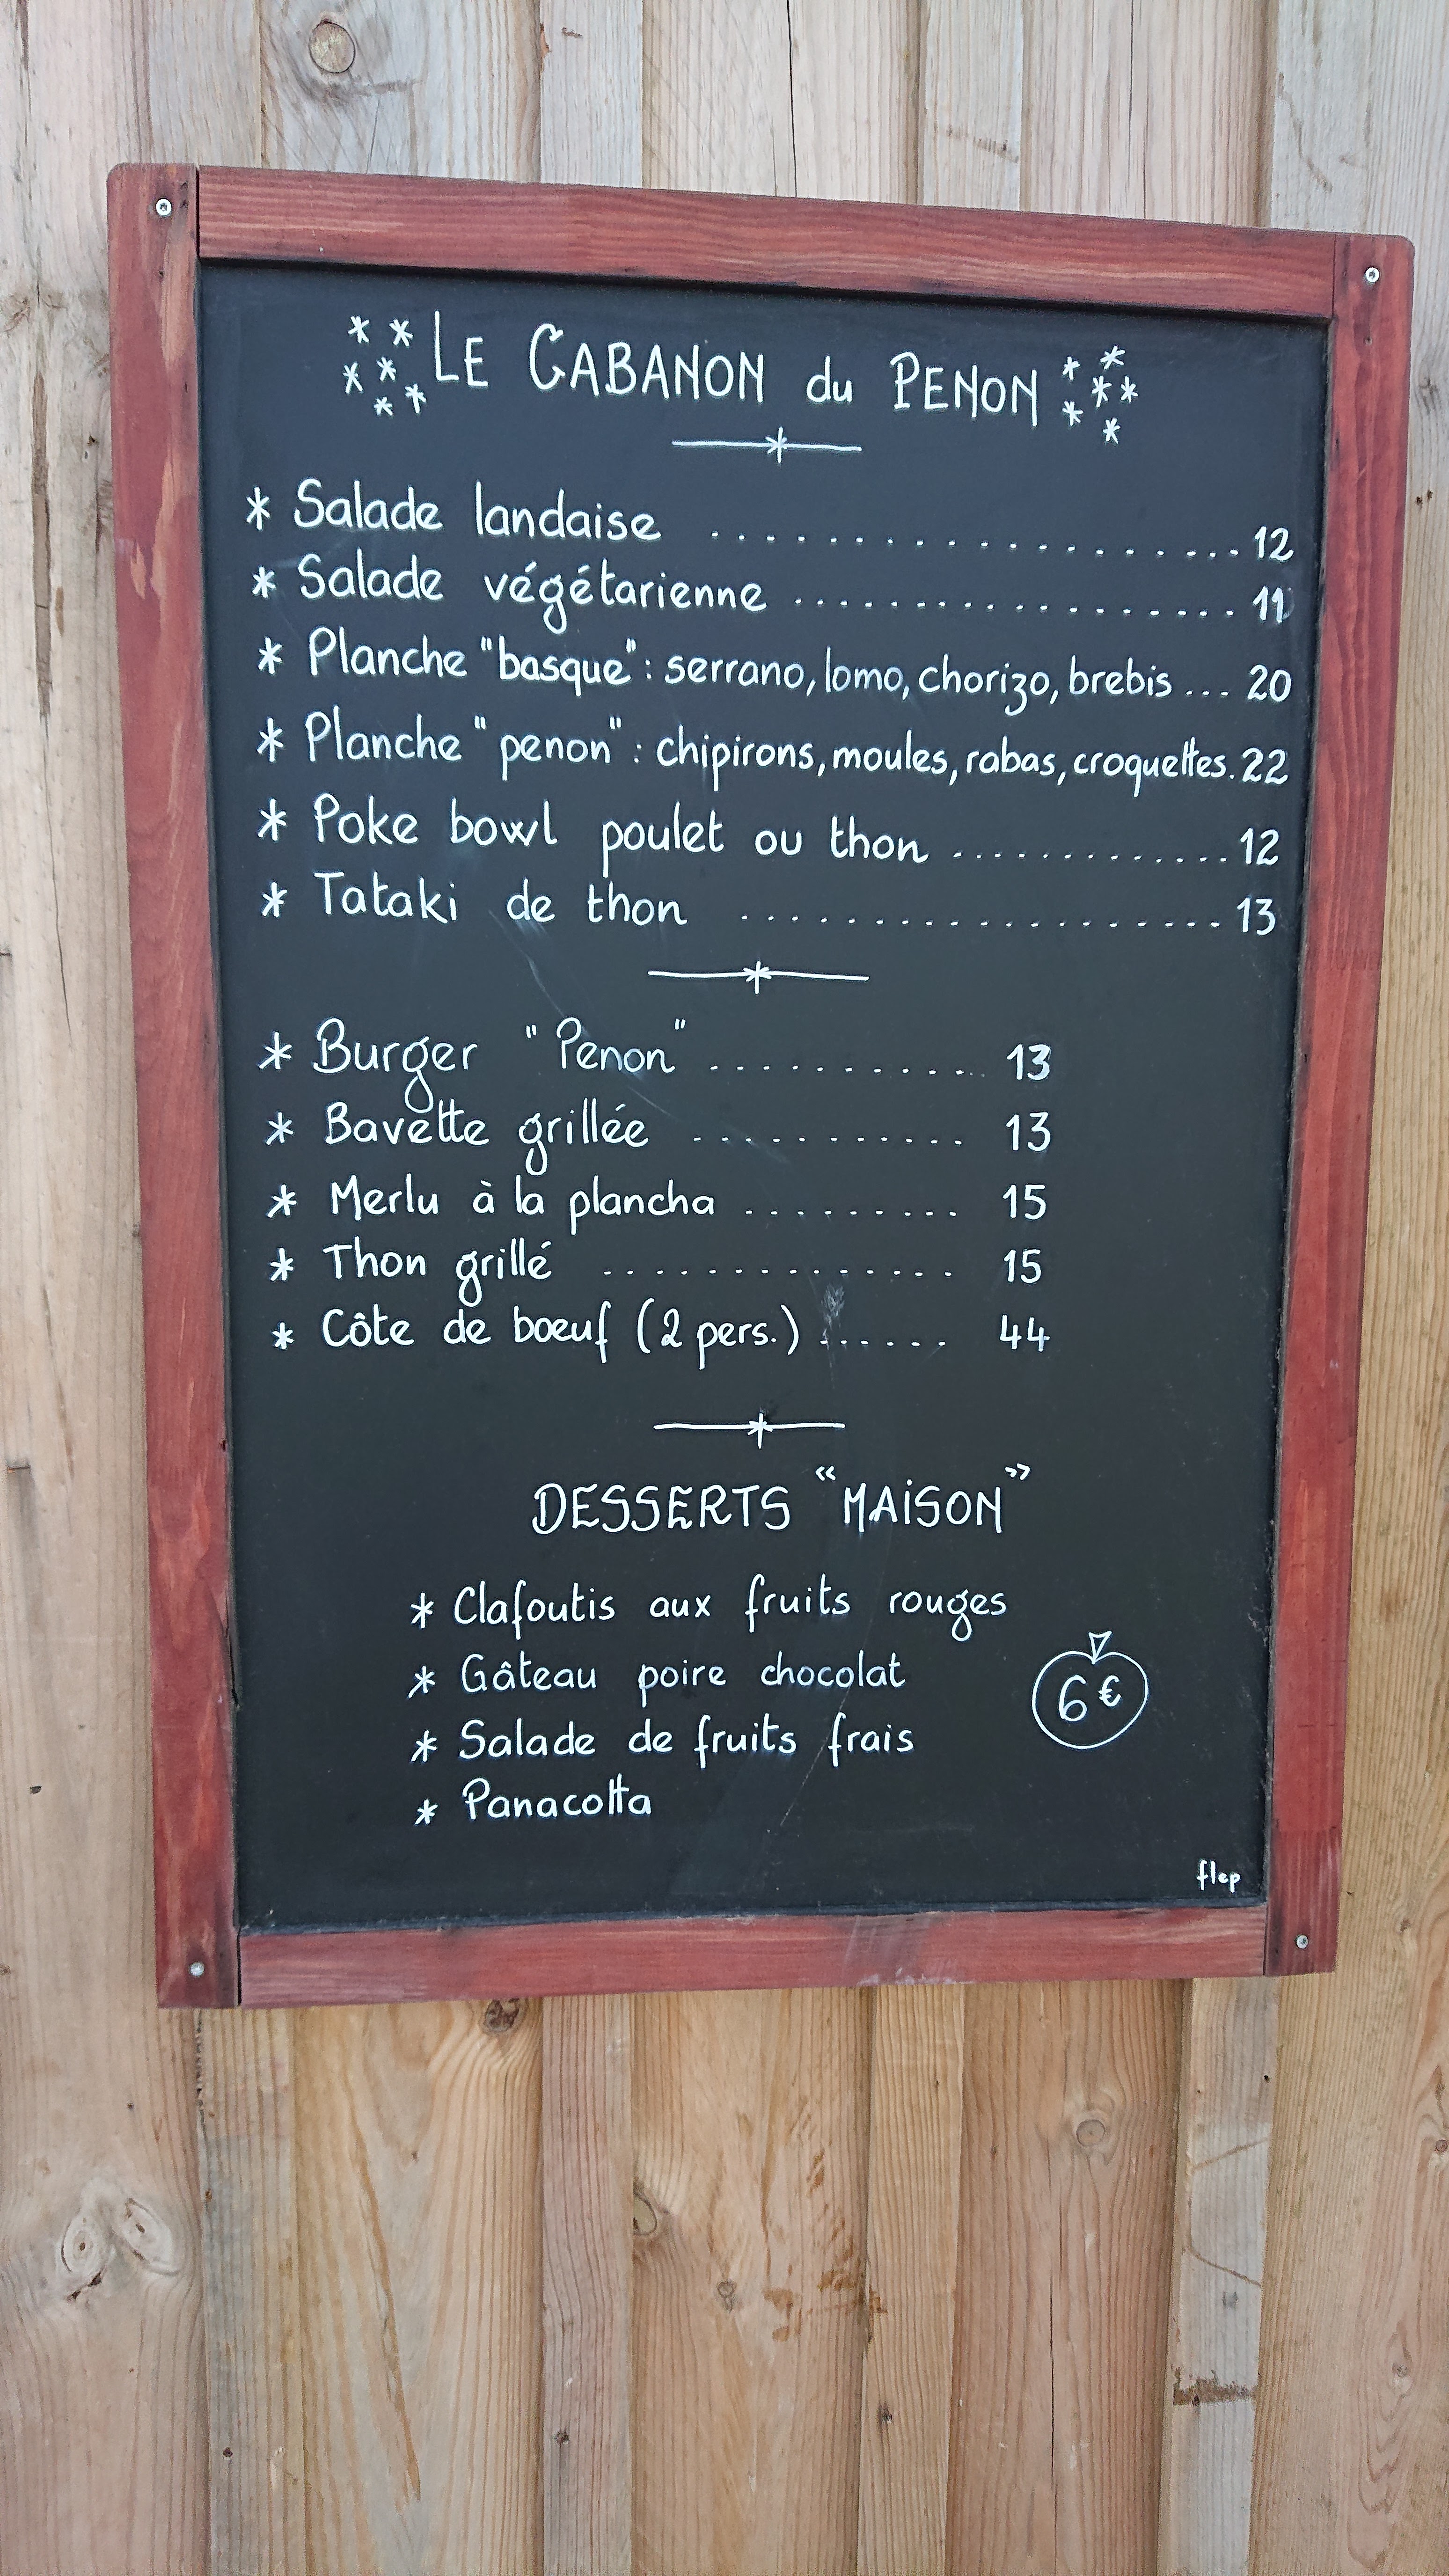 LE CABANON du PENON
* Salade landaise .................... 12
* Salade végétarienne .................. 11
* Planche "basque" : serrano, lomo, chorizo, brebis ... 20
* Planche "penon" : chipirons, moules, rabas, croquettes. 22
* Poke bowl poulet ou thon ............. 12
* Tataki de thon ................... 13
* Burger "Penon" ............ 13
* Bavette grillée ........... 13
* Merlu à la plancha ......... 15
* Thon grillé .............. 15
* Côte de boeuf (2 pers.) ...... 44
DESSERTS "MAISON"
* Clafoutis aux fruits rouges
* Gâteau poire chocolat
6€
* Salade de fruits frais
* Panacotta
flep